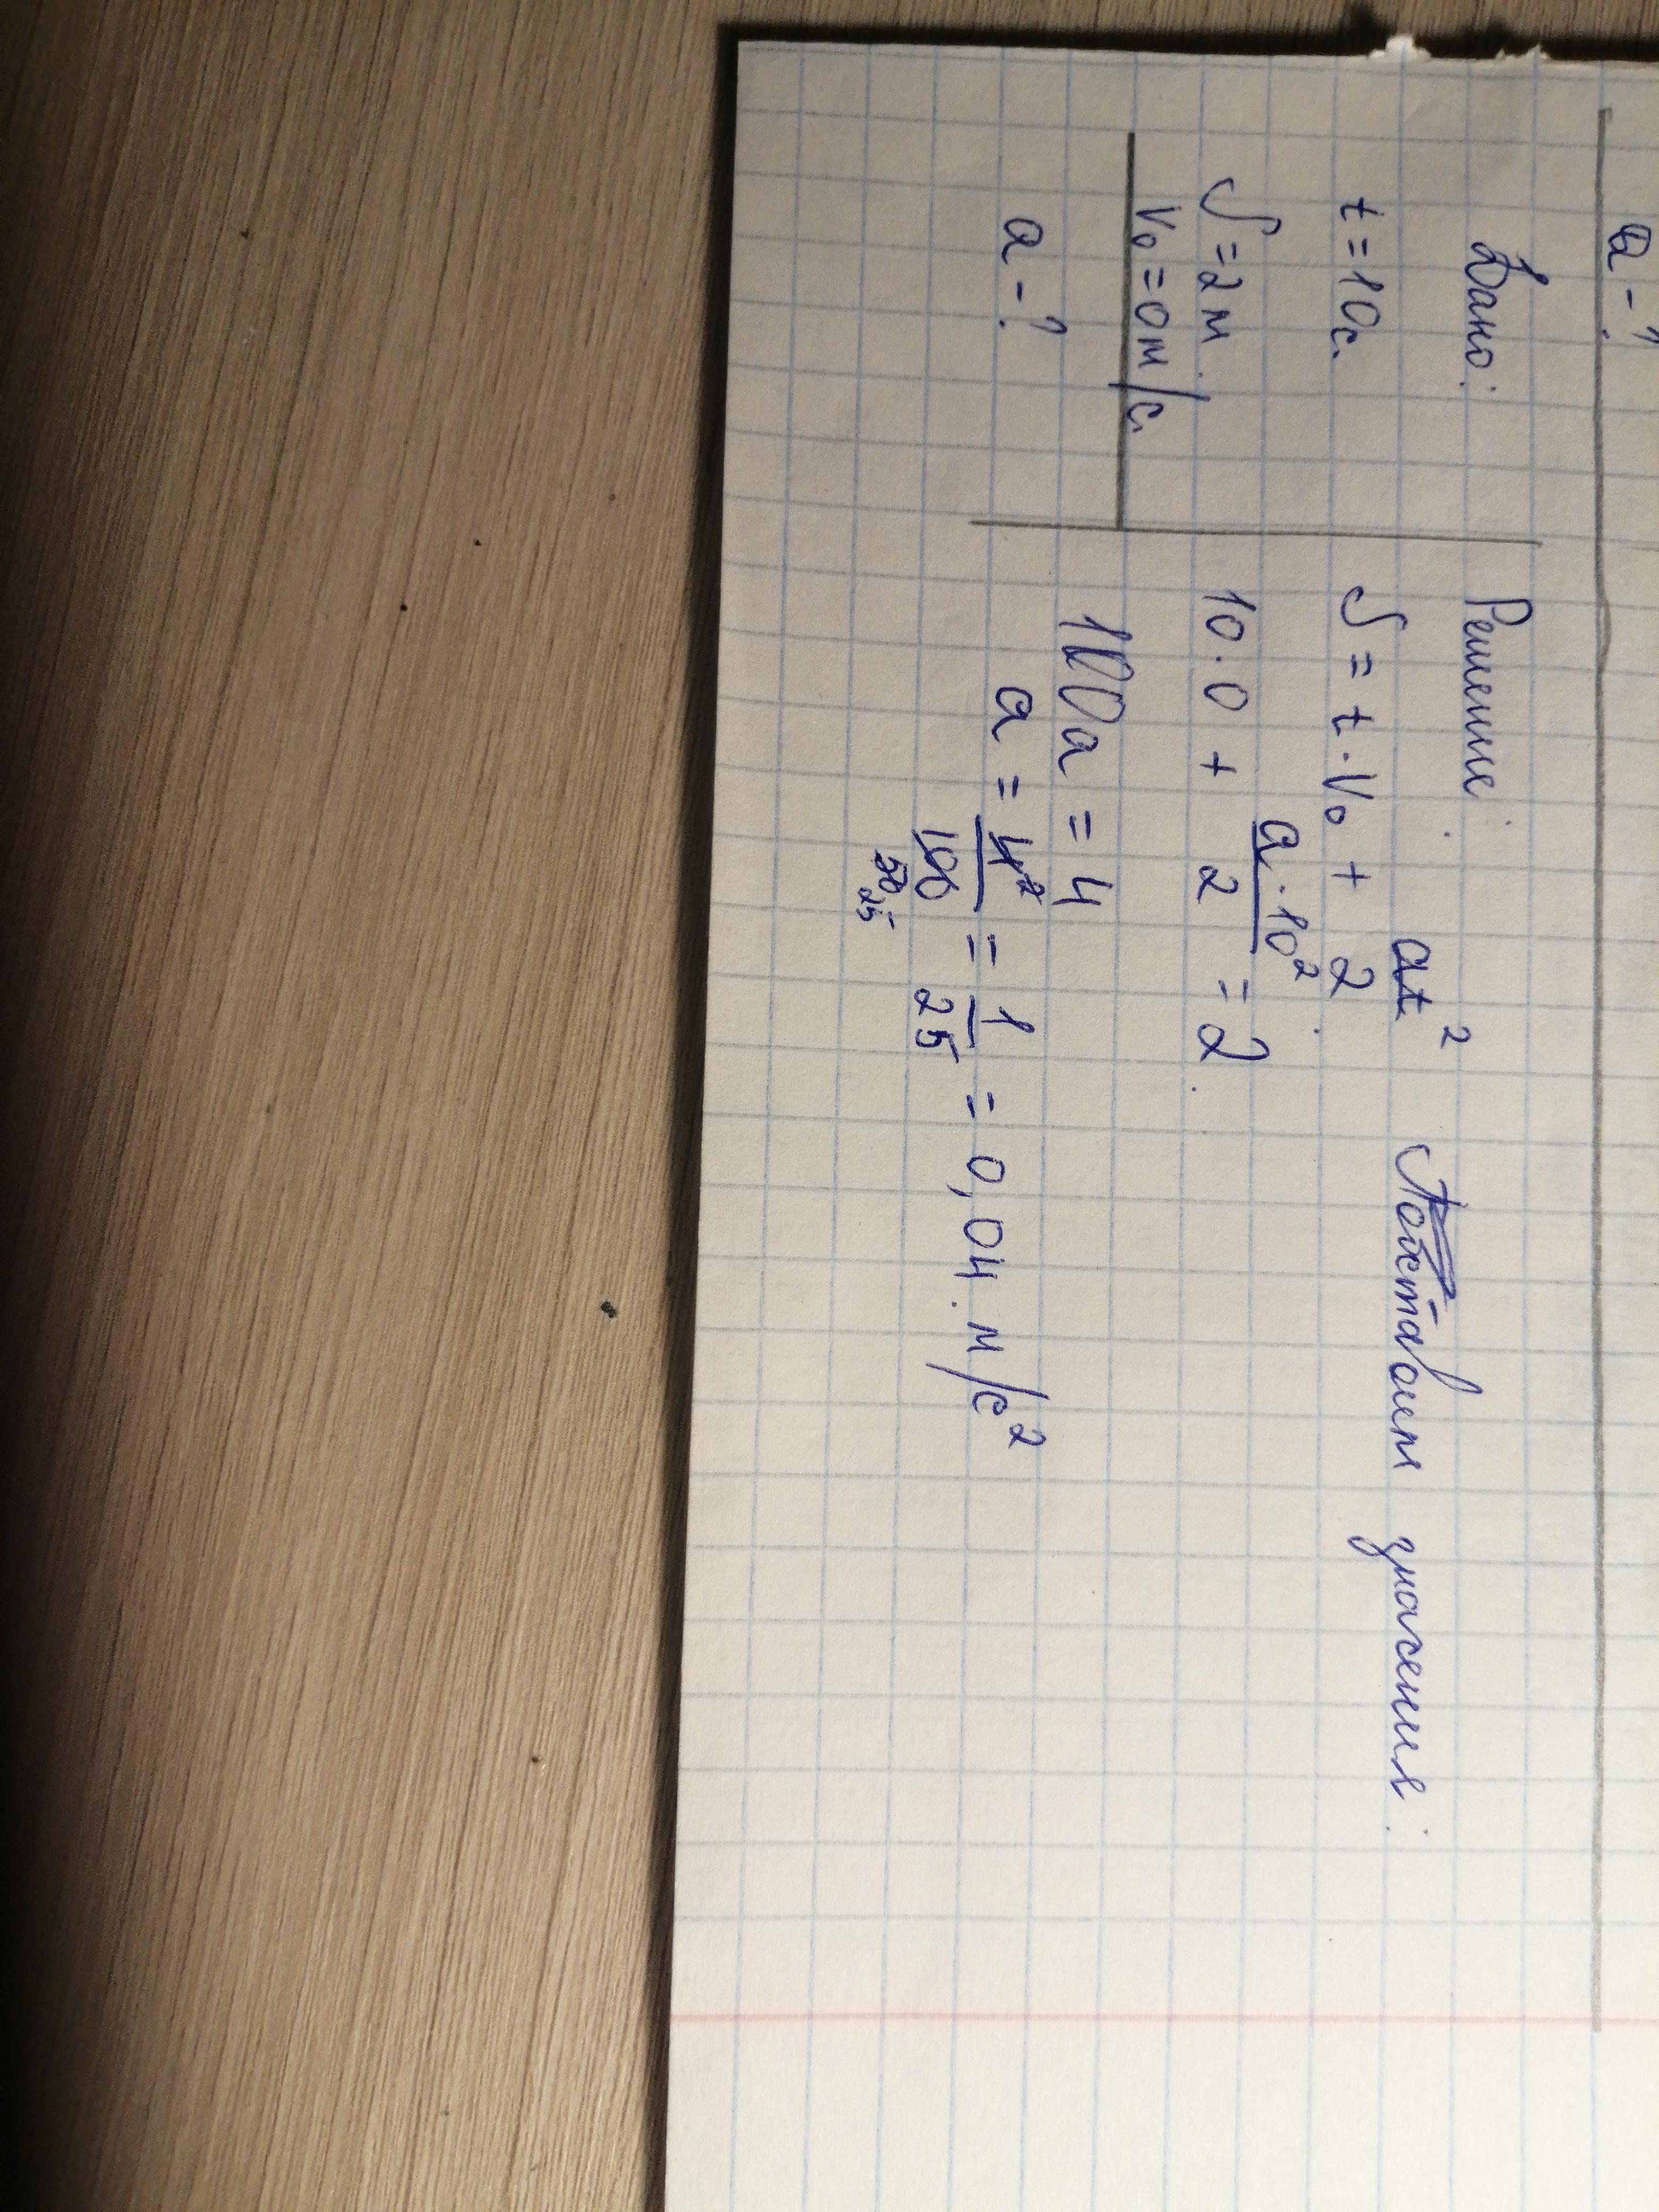 a - ?
Дано:
t = 10с.
S = 2 м.
V₀ = 0 м/с.
a - ?
Решение:
S = t · V₀ + at²/2. Подставим значения:
10 · 0 + a · 10²/2 = 2.
100a = 4
a = 4²/100 50 25 = 1/25 = 0,04 м/с²